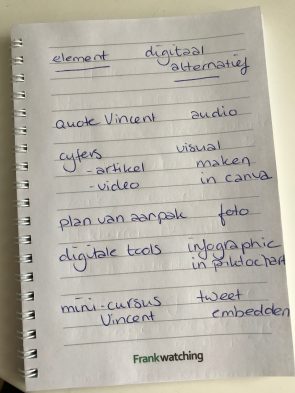 element digitaal
alternatief
quote Vincent audio
cyfers visual
-artikel maken
-video in canva
plan van aanpak foto
digitale tools infographic
in piktochart
mini-cursus tweet
Vincent embedden
Frankwatching